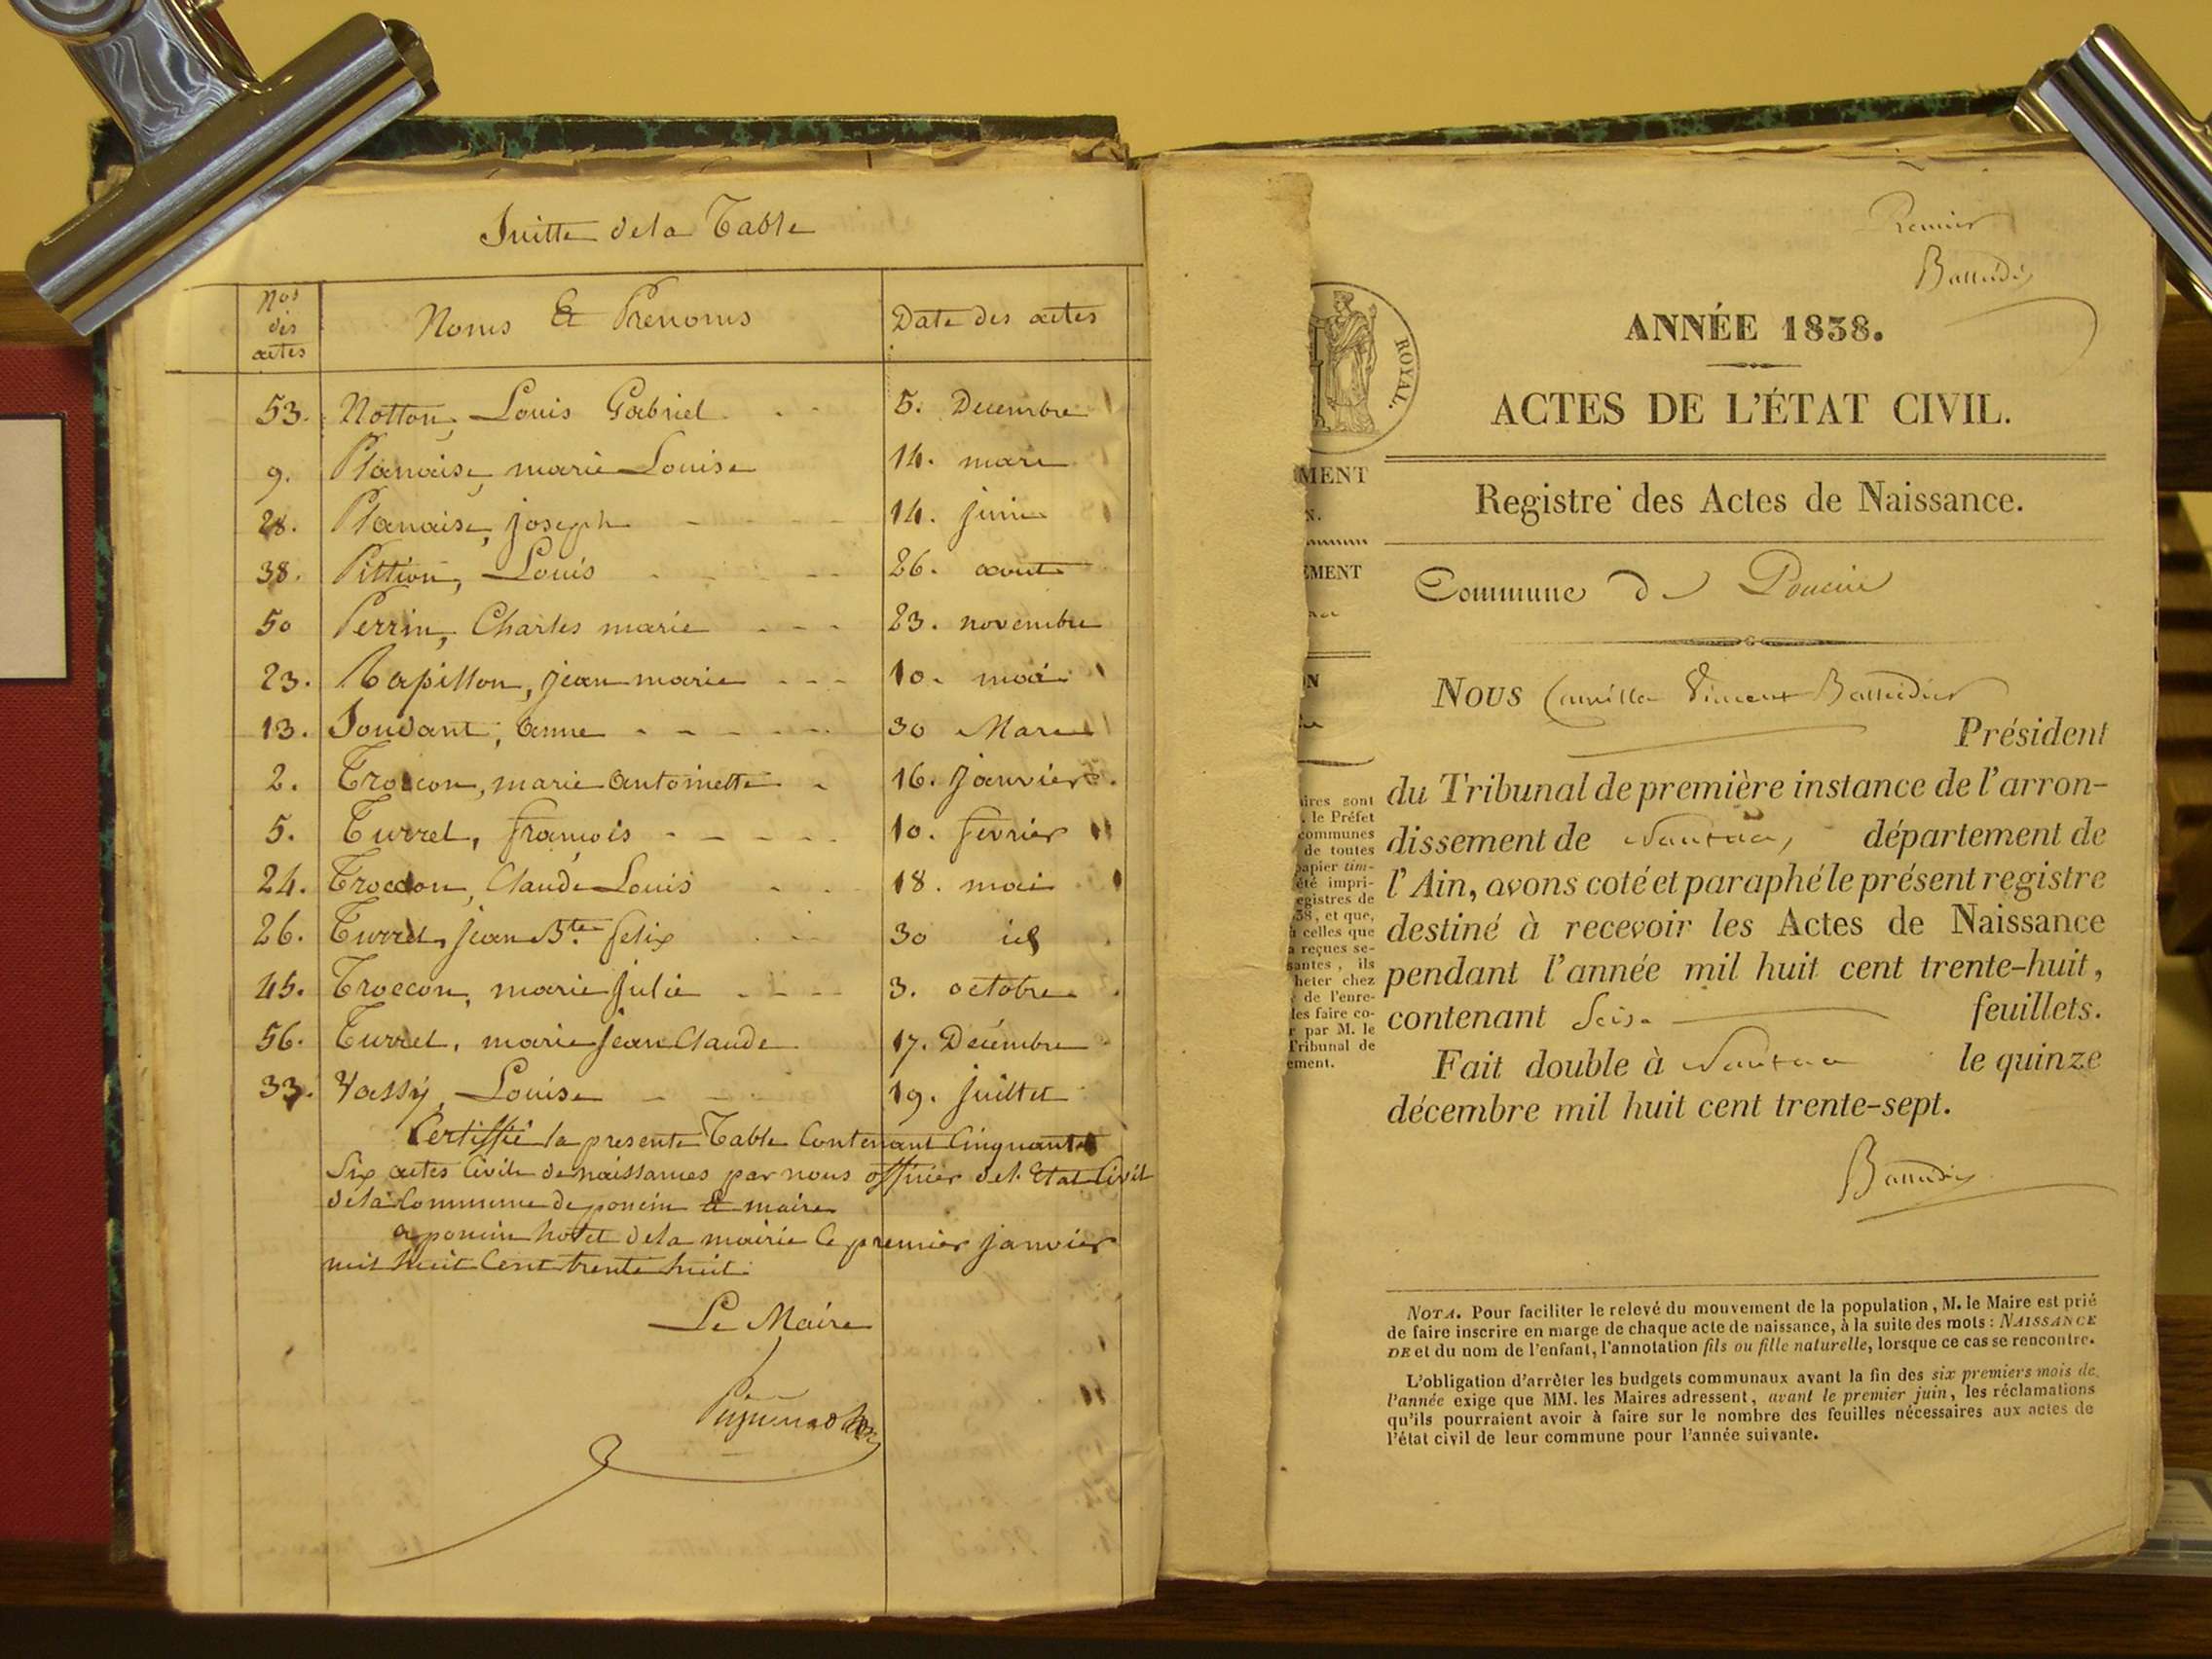 Suitte de la Table
Nos des actes Noms Et Prenoms Date des actes
53. Notton, Louis Gabriel 5. Decembre
9. Planaise, marie Louise 14. mars
28. Planaise, joseph 14. juin
38. Pittion, Louis 26. aout
50 Perrin, Charles marie 23. novembre
23. Papillon, jean marie 10. mai
13. Soudant, anne 30 Mars
2. Troccon, marie antoinette 16. janvier.
5. Turrel, françois 10. fevrier
24. Troccon, Claude Louis 18. mai
26. Turrel, jean Bte felix 30 id
45. Troccon, marie julie 3. octobre
56. Turrel, marie jean Claude 17. Decembre
33. Vassy, Louise 19. juillet
Certiffié la presente Table Contenant Cinquante
Six actes Civils de naissances par nous officier de l'Etat Civil
de la Commune de poncin & maire
a poncin hotel de la mairie le premier janvier
mil huit Cent trente huit.
Le Maire
Premier
ROYAL.
ANNÉE 1838.
ACTES DE L'ÉTAT CIVIL.
Registre des Actes de Naissance.
Commune de Poncin
Nous Camille Vincent
Président
du Tribunal de première instance de l'arron-
dissement de Nantua, département de
l'Ain, avons coté et paraphé le présent registre
destiné à recevoir les Actes de Naissance
pendant l'année mil huit cent trente-huit,
contenant Seize feuillets.
Fait double à Nantua le quinze
décembre mil huit cent trente-sept.
NOTA. Pour faciliter le relevé du mouvement de la population, M. le Maire est prié
de faire inscrire en marge de chaque acte de naissance, à la suite des mots : NAISSANCE
DE et du nom de l'enfant, l'annotation fils ou fille naturelle, lorsque ce cas se rencontre.
L'obligation d'arrêter les budgets communaux avant la fin des six premiers mois de
l'année exige que MM. les Maires adressent, avant le premier juin, les réclamations
qu'ils pourraient avoir à faire sur le nombre des feuilles nécessaires aux actes de
l'état civil de leur commune pour l'année suivante.
MENT
EMENT
ires sont
le Préfet
communes
de toutes
papier tim-
été impri-
egistres de
38, et que,
à celles que
a reçues se-
santes, ils
heter chez
de l'enre-
les faire co-
r par M. le
Tribunal de
ement.